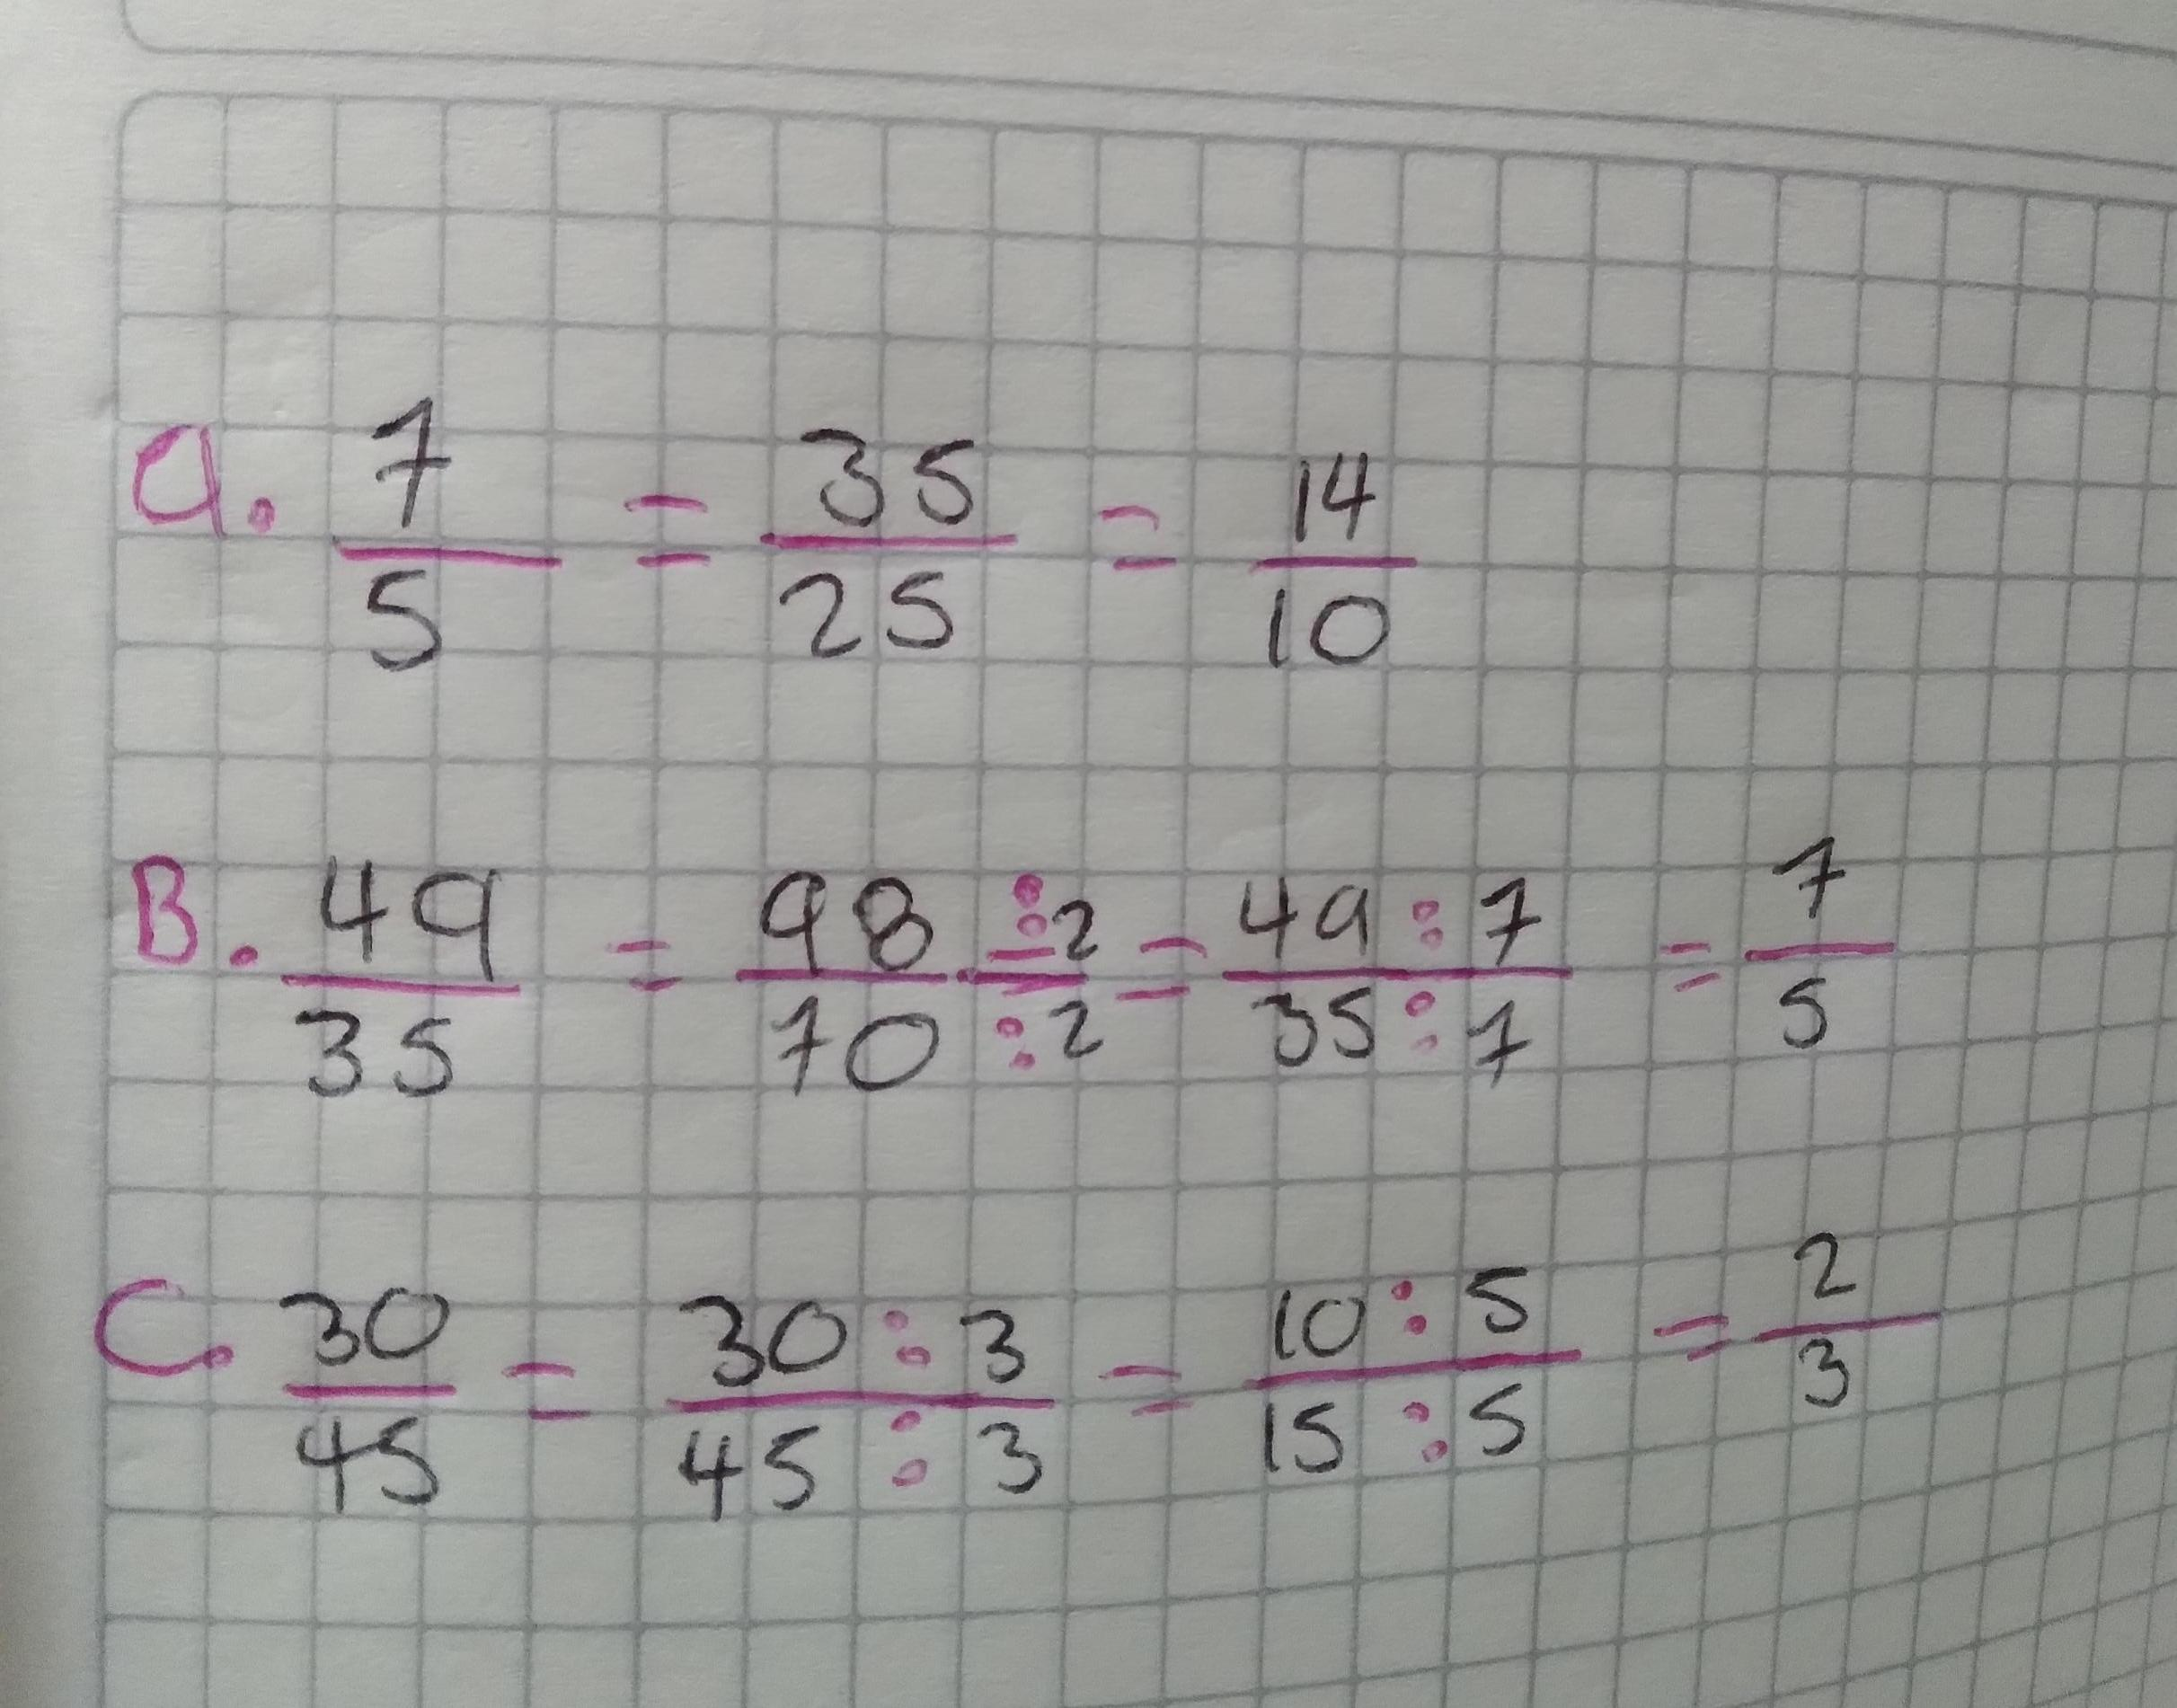 a. 7/5 = 35/25 = 14/10
B. 49/35 = 98:2/70:2 = 49:7/35:7 = 7/5
C. 30/45 = 30:3/45:3 = 10:5/15:5 = 2/3